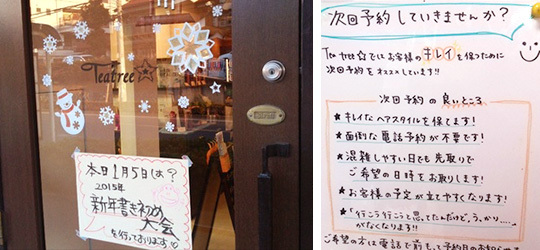 Teatree☆
本日1月5日(は?
2015年
新年書き初め
大会
を行っております♡
次回予約していきませんか?
Tea tree☆では お客様の キレイ を保つために
次回予約をオススメしています!!
次回予約の良いところ
★キレイなヘアスタイルを保てます!
★面倒な電話予約が不要です!
★混雑しやすい日でも先取りで
ご希望の日時をお取りします!
★お客様の予定が立てやすくなります!
★「行こう行こうと思ってたんだけど、うっかり.....」
がなくなります!!
ご希望の方は電話で前もって予約日のお知らせ